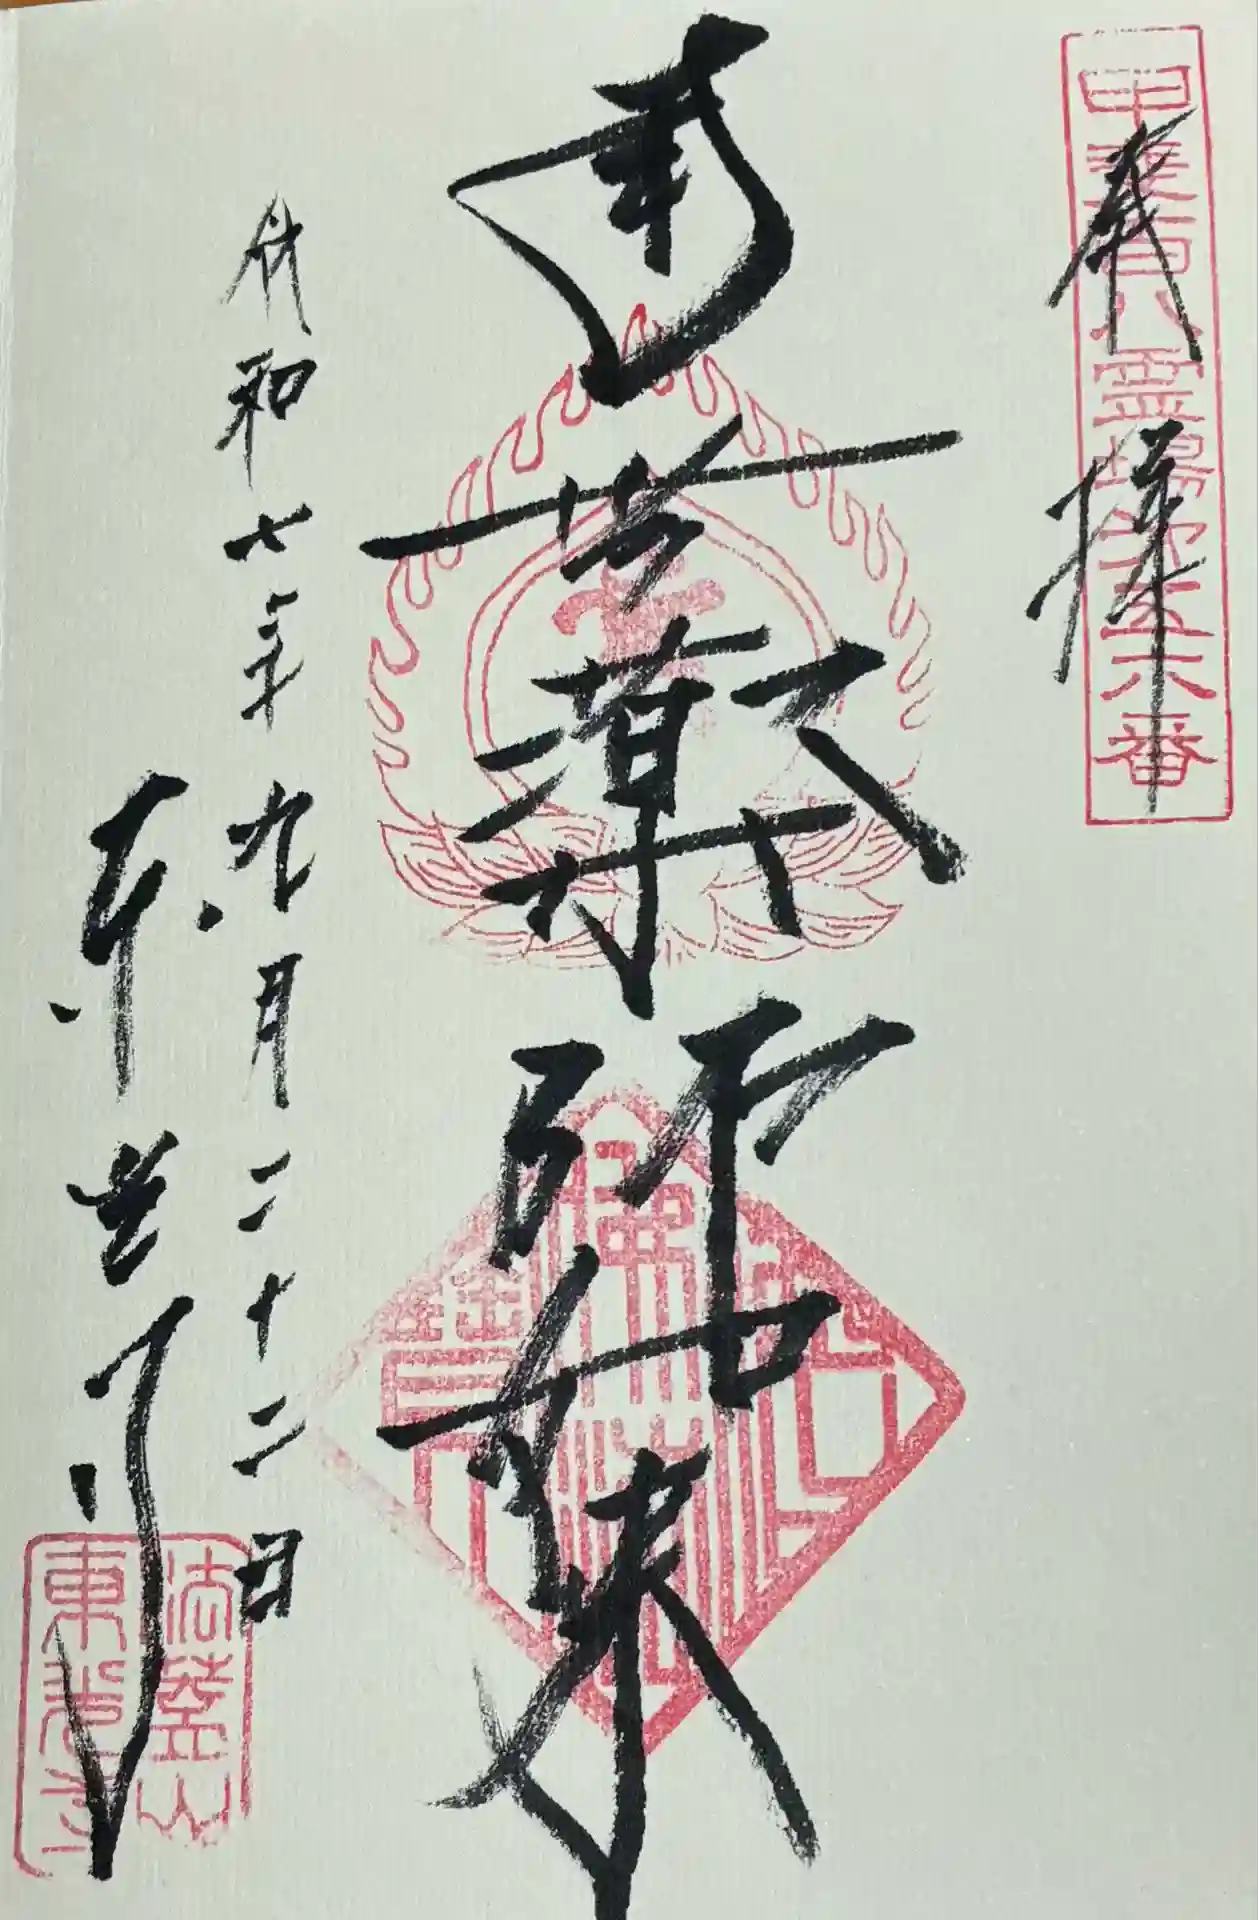 甲斐百八霊場第五六番
奉拝
南無薬師如来
令和七年九月二十二日
東光寺
法蓋山
東光寺